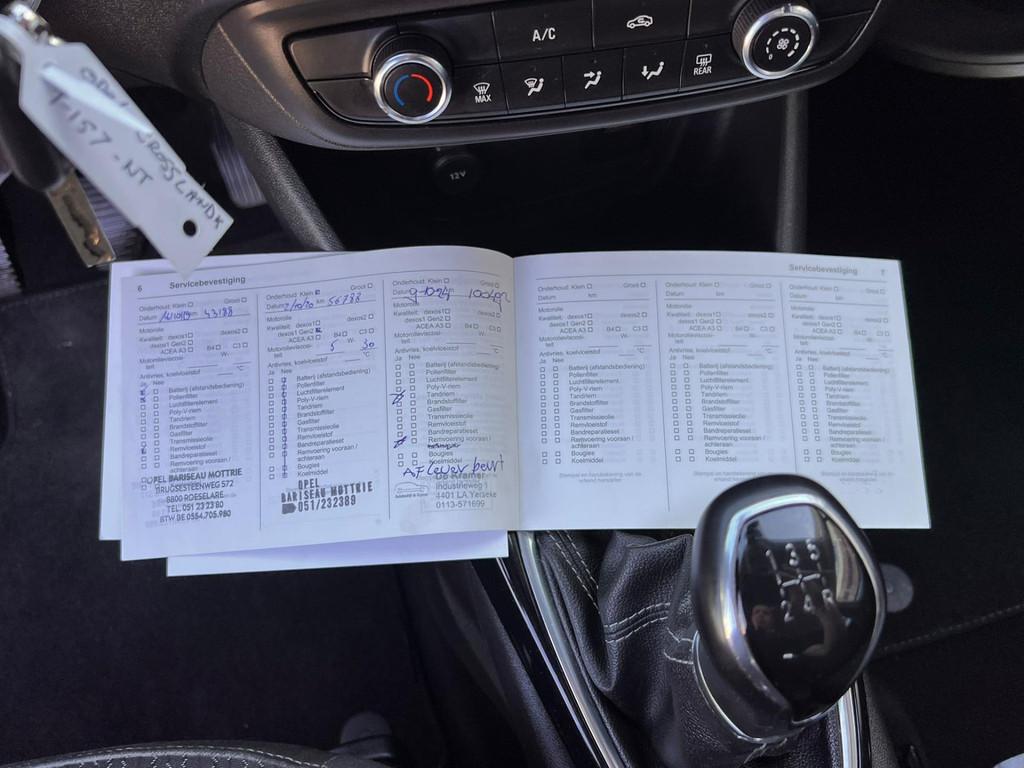 A/C
MAX
REAR
12V
CROSSLANDX
T-157-NT
6 Servicebevestiging
Onderhoud: Klein Groot
Datum 14/10/19 km 43188
Motorolie
Kwaliteit: dexos1 dexos2
dexos1 Gen2
ACEA A3 B4 C3
Motorolieviscosi- W-
teit
Antivries, koelvloeistof °C
Ja Nee
Batterij (afstandsbediening)
Pollenfilter
Luchtfilterelement
Poly-V-riem
Tandriem
Brandstoffilter
Gasfilter
Transmissieolie
Remvloeistof
Bandreparatieset
Remvoering vooraan /
achteraan
Bougies
Koelmiddel
OPEL BARISEAU MOTTRIE
BRUGSESTEENWEG 572
8800 ROESELARE
TEL. 051 23 23 80
BTW BE 0554.705.980
Onderhoud: Klein Groot
Datum 2/10/20 km 56788
Motorolie
Kwaliteit: dexos1 dexos2
dexos1 Gen2
ACEA A3 B4 C3
Motorolieviscosi- 5 W- 30
teit
Antivries, koelvloeistof °C
Ja Nee
Batterij (afstandsbediening)
Pollenfilter
Luchtfilterelement
Poly-V-riem
Tandriem
Brandstoffilter
Gasfilter
Transmissieolie
Remvloeistof
Bandreparatieset
Remvoering vooraan /
achteraan
Bougies
Koelmiddel
OPEL
BARISEAU MOTTRIE
051/232389
Onderhoud: Klein Groot
Datum 9-10-24
Motorolie
Kwaliteit: dexos1 dexos2
dexos1 Gen2
ACEA A3 B4 C3
Motorolieviscosi- W-
teit
Antivries, koelvloeistof °C
Ja Nee
Batterij (afstandsbediening)
Pollenfilter
Luchtfilterelement
Poly-V-riem
Tandriem
Brandstoffilter
Gasfilter
Transmissieolie
Remvloeistof
Bandreparatieset
Remvoering vooraan /
Bougies
Koelmiddel
Aflever beurt
De Kramer
Industrieweg 1
4401 LA Yerseke
0113-571699
Servicebevestiging 7
Onderhoud: Klein Groot
Datum km
Motorolie
Kwaliteit: dexos1 dexos2
dexos1 Gen2
ACEA A3 B4 C3
Motorolieviscosi- W-
teit
Antivries, koelvloeistof °C
Ja Nee
Batterij (afstandsbediening)
Pollenfilter
Luchtfilterelement
Poly-V-riem
Tandriem
Brandstoffilter
Gasfilter
Transmissieolie
Remvloeistof
Bandreparatieset
Remvoering vooraan /
achteraan
Bougies
Koelmiddel
Stempel en handtekening van de
erkend hersteller
Onderhoud: Klein Groot
Datum km
Motorolie
Kwaliteit: dexos1 dexos2
dexos1 Gen2
ACEA A3 B4 C3
Motorolieviscosi- W-
teit
Antivries, koelvloeistof °C
Ja Nee
Batterij (afstandsbediening)
Pollenfilter
Luchtfilterelement
Poly-V-riem
Tandriem
Brandstoffilter
Gasfilter
Transmissieolie
Remvloeistof
Bandreparatieset
Remvoering vooraan /
achteraan
Bougies
Koelmiddel
Stempel en handtekening van de
erkend hersteller
Onderhoud: Klein Groot
Datum km
Motorolie
Kwaliteit: dexos1 dexos2
dexos1 Gen2
ACEA A3 B4 C3
Motorolieviscosi- W-
teit
Antivries, koelvloeistof °C
Ja Nee
Batterij (afstandsbediening)
Pollenfilter
Luchtfilterelement
Poly-V-riem
Tandriem
Brandstoffilter
Gasfilter
Transmissieolie
Remvloeistof
Bandreparatieset
Remvoering vooraan /
achteraan
Bougies
Koelmiddel
Stempel en handtekening van de
erkend hersteller
1 3 5
2 4 R